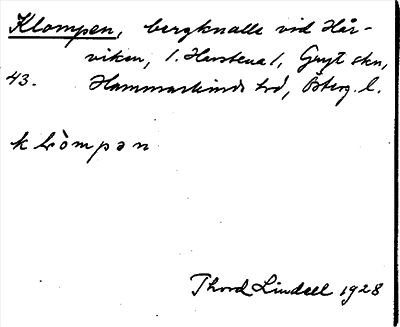 Klompen, bergknalle vid Hår-
viken, l. Harstena 1, Gryt skn,
43. Hammarkinds hd, Österg. l.
klòmpən
Thord Lindell 1928